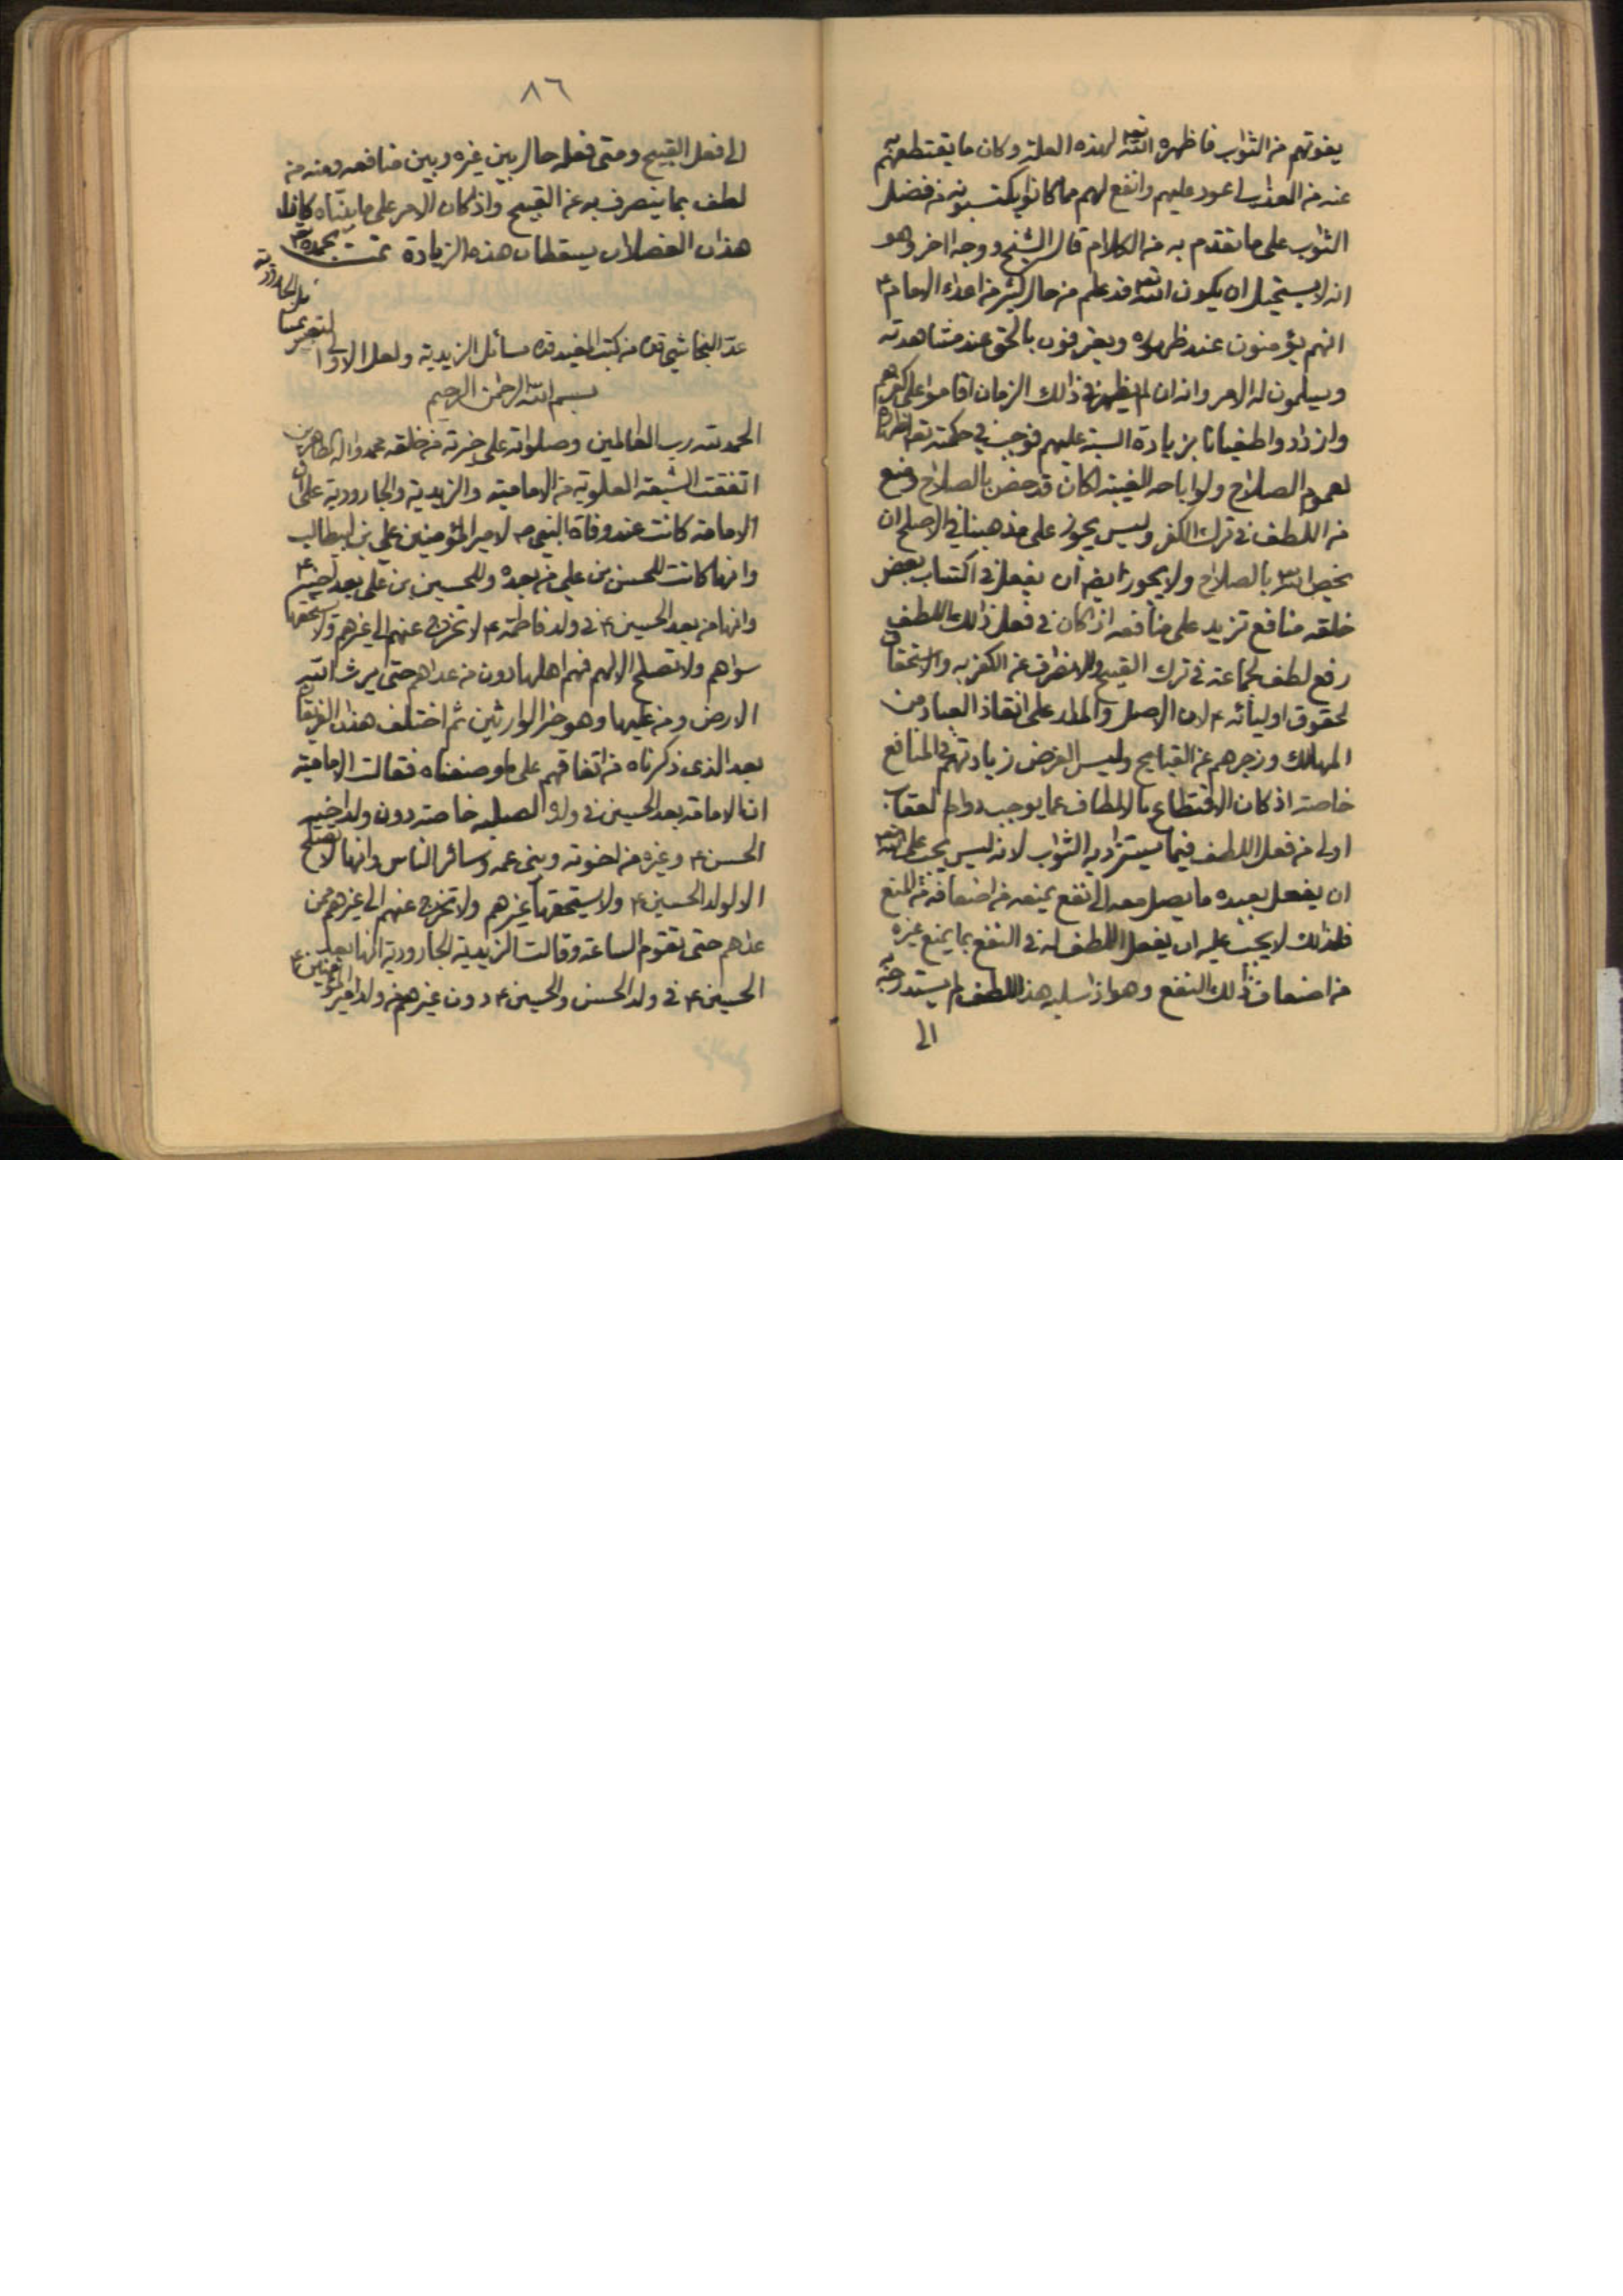 يفوتهم من الثواب فاظهره الله تعه لهذه العلة وكان ما يقتطعهم به
عنه من العذاب اعود عليهم وانفع لهم مما كانوا يكتسبونه من فضل
الثواب على ما تقدم به من الكلام قال الشيخ ووجه اخر وهو
انه لا يستحيل ان يكون الله تعه قد علم من حال كثير من اعداء الامام ع
انهم يؤمنون عند ظهوره ويعترفون بالحق عند مشاهدته
ويسلمون له الامر وانه ان لم يظهر في ذلك الزمان اقاموا على كفرهم
وازدادوا طغيانا بزيادة الشبهة عليهم فوجب في حكمته تعه اظهاره
لعموم الصلاح ولو اباحه الغيبة لكان قد خص بالصلاح ومنع
من اللطف في ترك الكفر وليس يجوز على مذهبنا في الاصلح ان
يخص الله تعه بالصلاح ولا يجوز ايضا ان يفعل في اكتساب بعض
خلقه منافع تزيد على منافعه اذا كان في فعل ذلك اللطف
رفع لطف لجماعة في ترك القبيح والانصراف عن الكفر به والاستخفاف
لحقوق اوليائه ع لان الاصل والمدار على انقاذ العباد من
المهالك وزجرهم عن القبايح وليس الغرض زيادتهم في المنافع
خاصة اذ كان الاقتطاع بالالطاف عما يوجب دوام العقاب
اولى من فعل اللطف فيما يستزاد به الثواب لانه ليس يجب على الله تعه
ان يفعل بعبده ما يصل معه الى نفع يمنعه من اضعافه من النفع
فكذلك لا يجب عليه ان يفعل اللطف له في النفع بما يمنع غيره
من اضعاف ذلك النفع وهو اذا سلبه هذا اللطف لم يستدرجه به
الى
٨٦
الى فعل القبيح ومتى فعله حال بين غيره وبين منافعه ومنعه من
لطف بما ينصرف به عن القبيح واذا كان الامر على ما بيناه كانا
هذان الفصلان يسقطان هذه الزيادة تمت بحمده تعه
عد النجاشي قده من كتب المفيد قده مسائل الزيدية ولعل الاولى ا
لتعبير بمسا
ئل الجارودية
بسم الله الرحمن الرحيم
الحمد لله رب العالمين وصلواته على خيرته من خلقه محمد واله الطاهرين
اتفقت الشيعة العلوية من الامامية والزيدية والجارودية على ان
الامامة كانت عند وفاة النبي ص لامير المؤمنين علي بن ابيطالب
وانها كانت للحسن بن علي من بعده وللحسين بن علي بعد اخيه ع
وانها من بعد الحسين ع في ولد فاطمة ع لا تخرج عنهم الى غيرهم ولا يستحقها
سواهم ولا تصلح الا لهم فهم اهلها دون من عداهم حتى يرث الله
الارض ومن عليها وهو خير الوارثين ثم اختلف هذان الفريقان
بعد الذي ذكرناه من اتفاقهم على ما وصفناه فقالت الامامية
ان الامامة بعد الحسين في ولده لصلبه خاصة دون ولد اخيه
الحسن ع وغيره من اخوته وبني عمه وسائر الناس وانها لا تصلح
الا لولد الحسين ع ولا يستحقها غيرهم ولا تخرج عنهم الى غيرهم ممن
عداهم حتى تقوم الساعة وقالت الزيدية الجارودية انها بعد
الحسين ع في ولد الحسن والحسين ع دون غيرهم من ولد امير المؤمنين ع